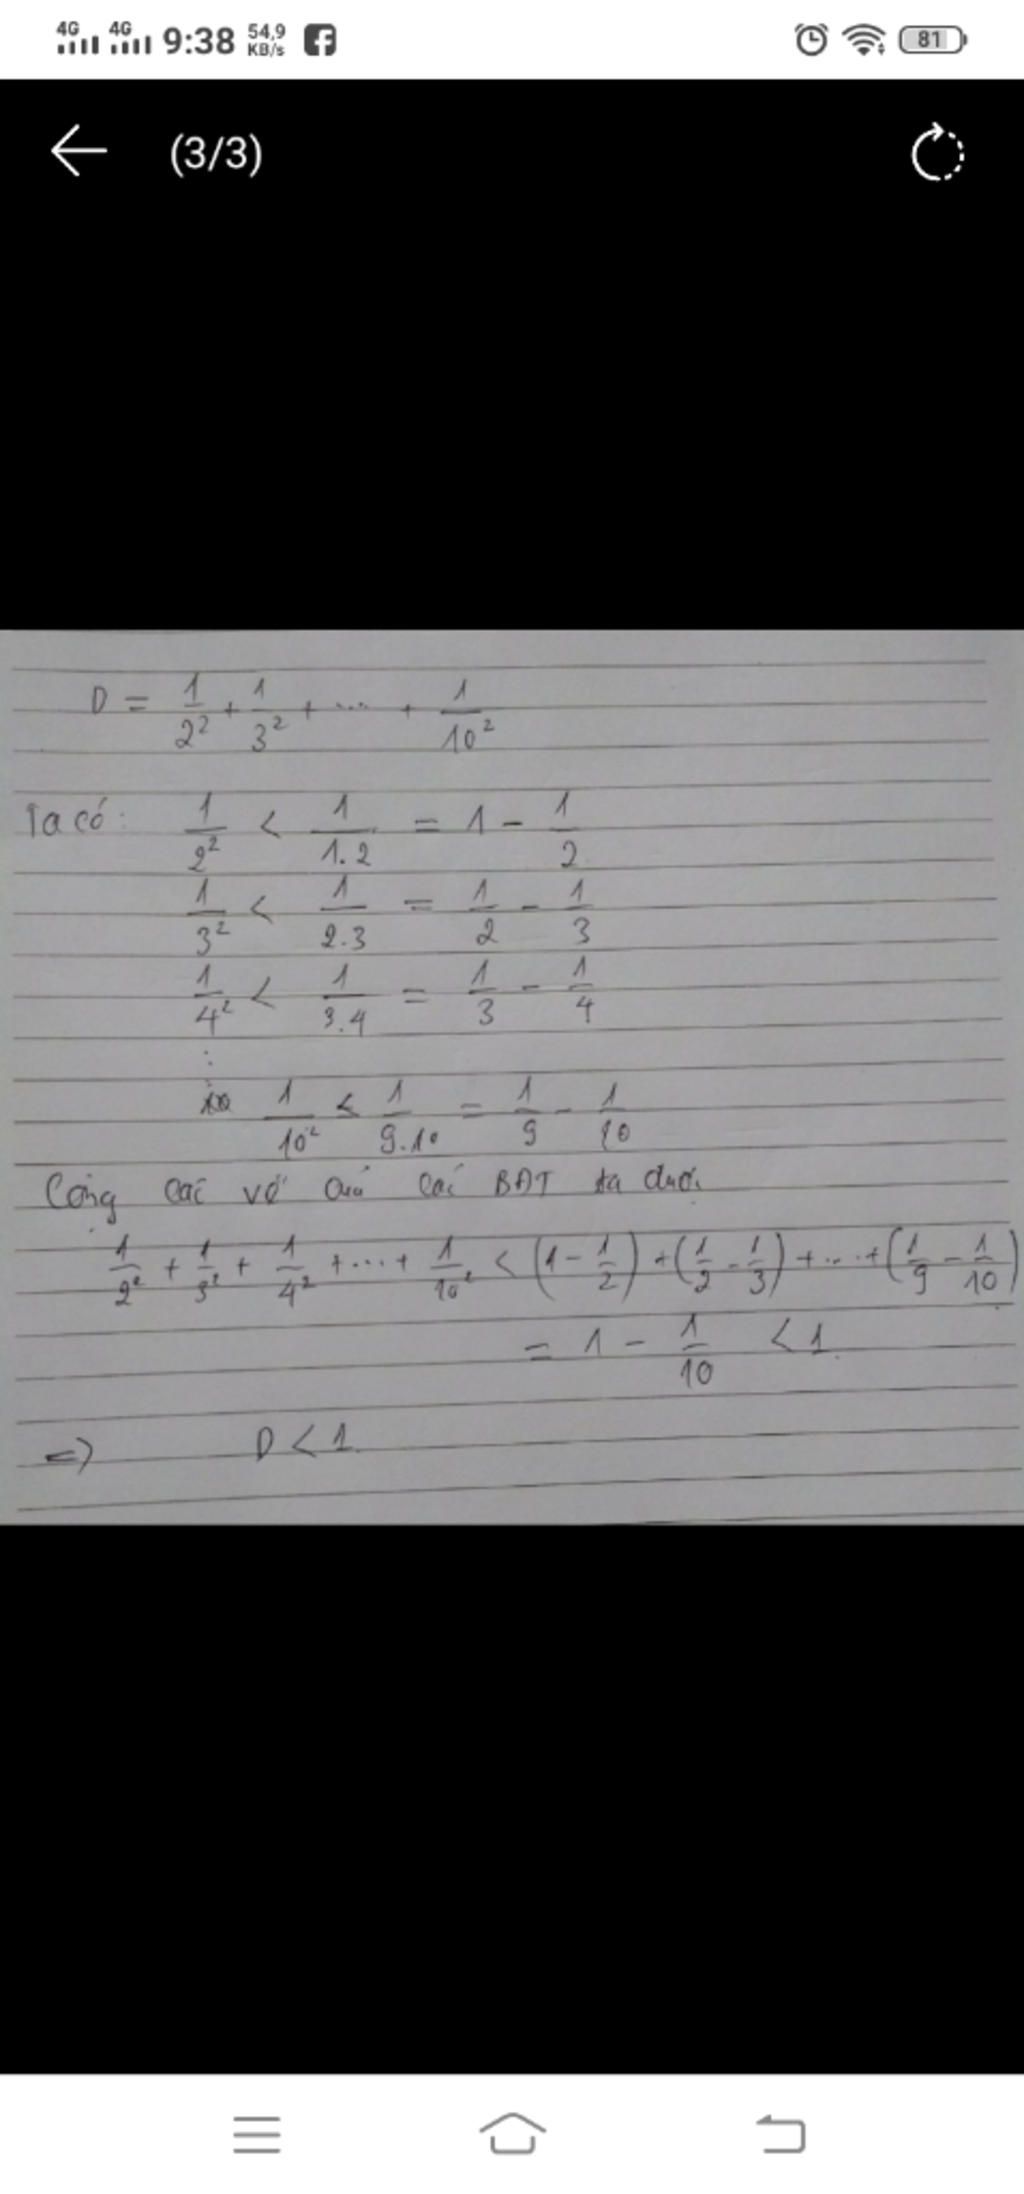 4G 4G 9:38 54,9 KB/s 81
(3/3)
D = 1/2² + 1/3² + ... + 1/10²
Ta có: 1/2² < 1/1.2 = 1 - 1/2
1/3² < 1/2.3 = 1/2 - 1/3
1/4² < 1/3.4 = 1/3 - 1/4
⋮
1/10² < 1/9.10 = 1/9 - 1/10
Cộng các vế các BĐT ta
1/2² + 1/3² + 1/4² + ... + 1/10² < (1 - 1/2) + (1/2 - 1/3) + ... + (1/9 - 1/10)
= 1 - 1/10 < 1
=> D < 1